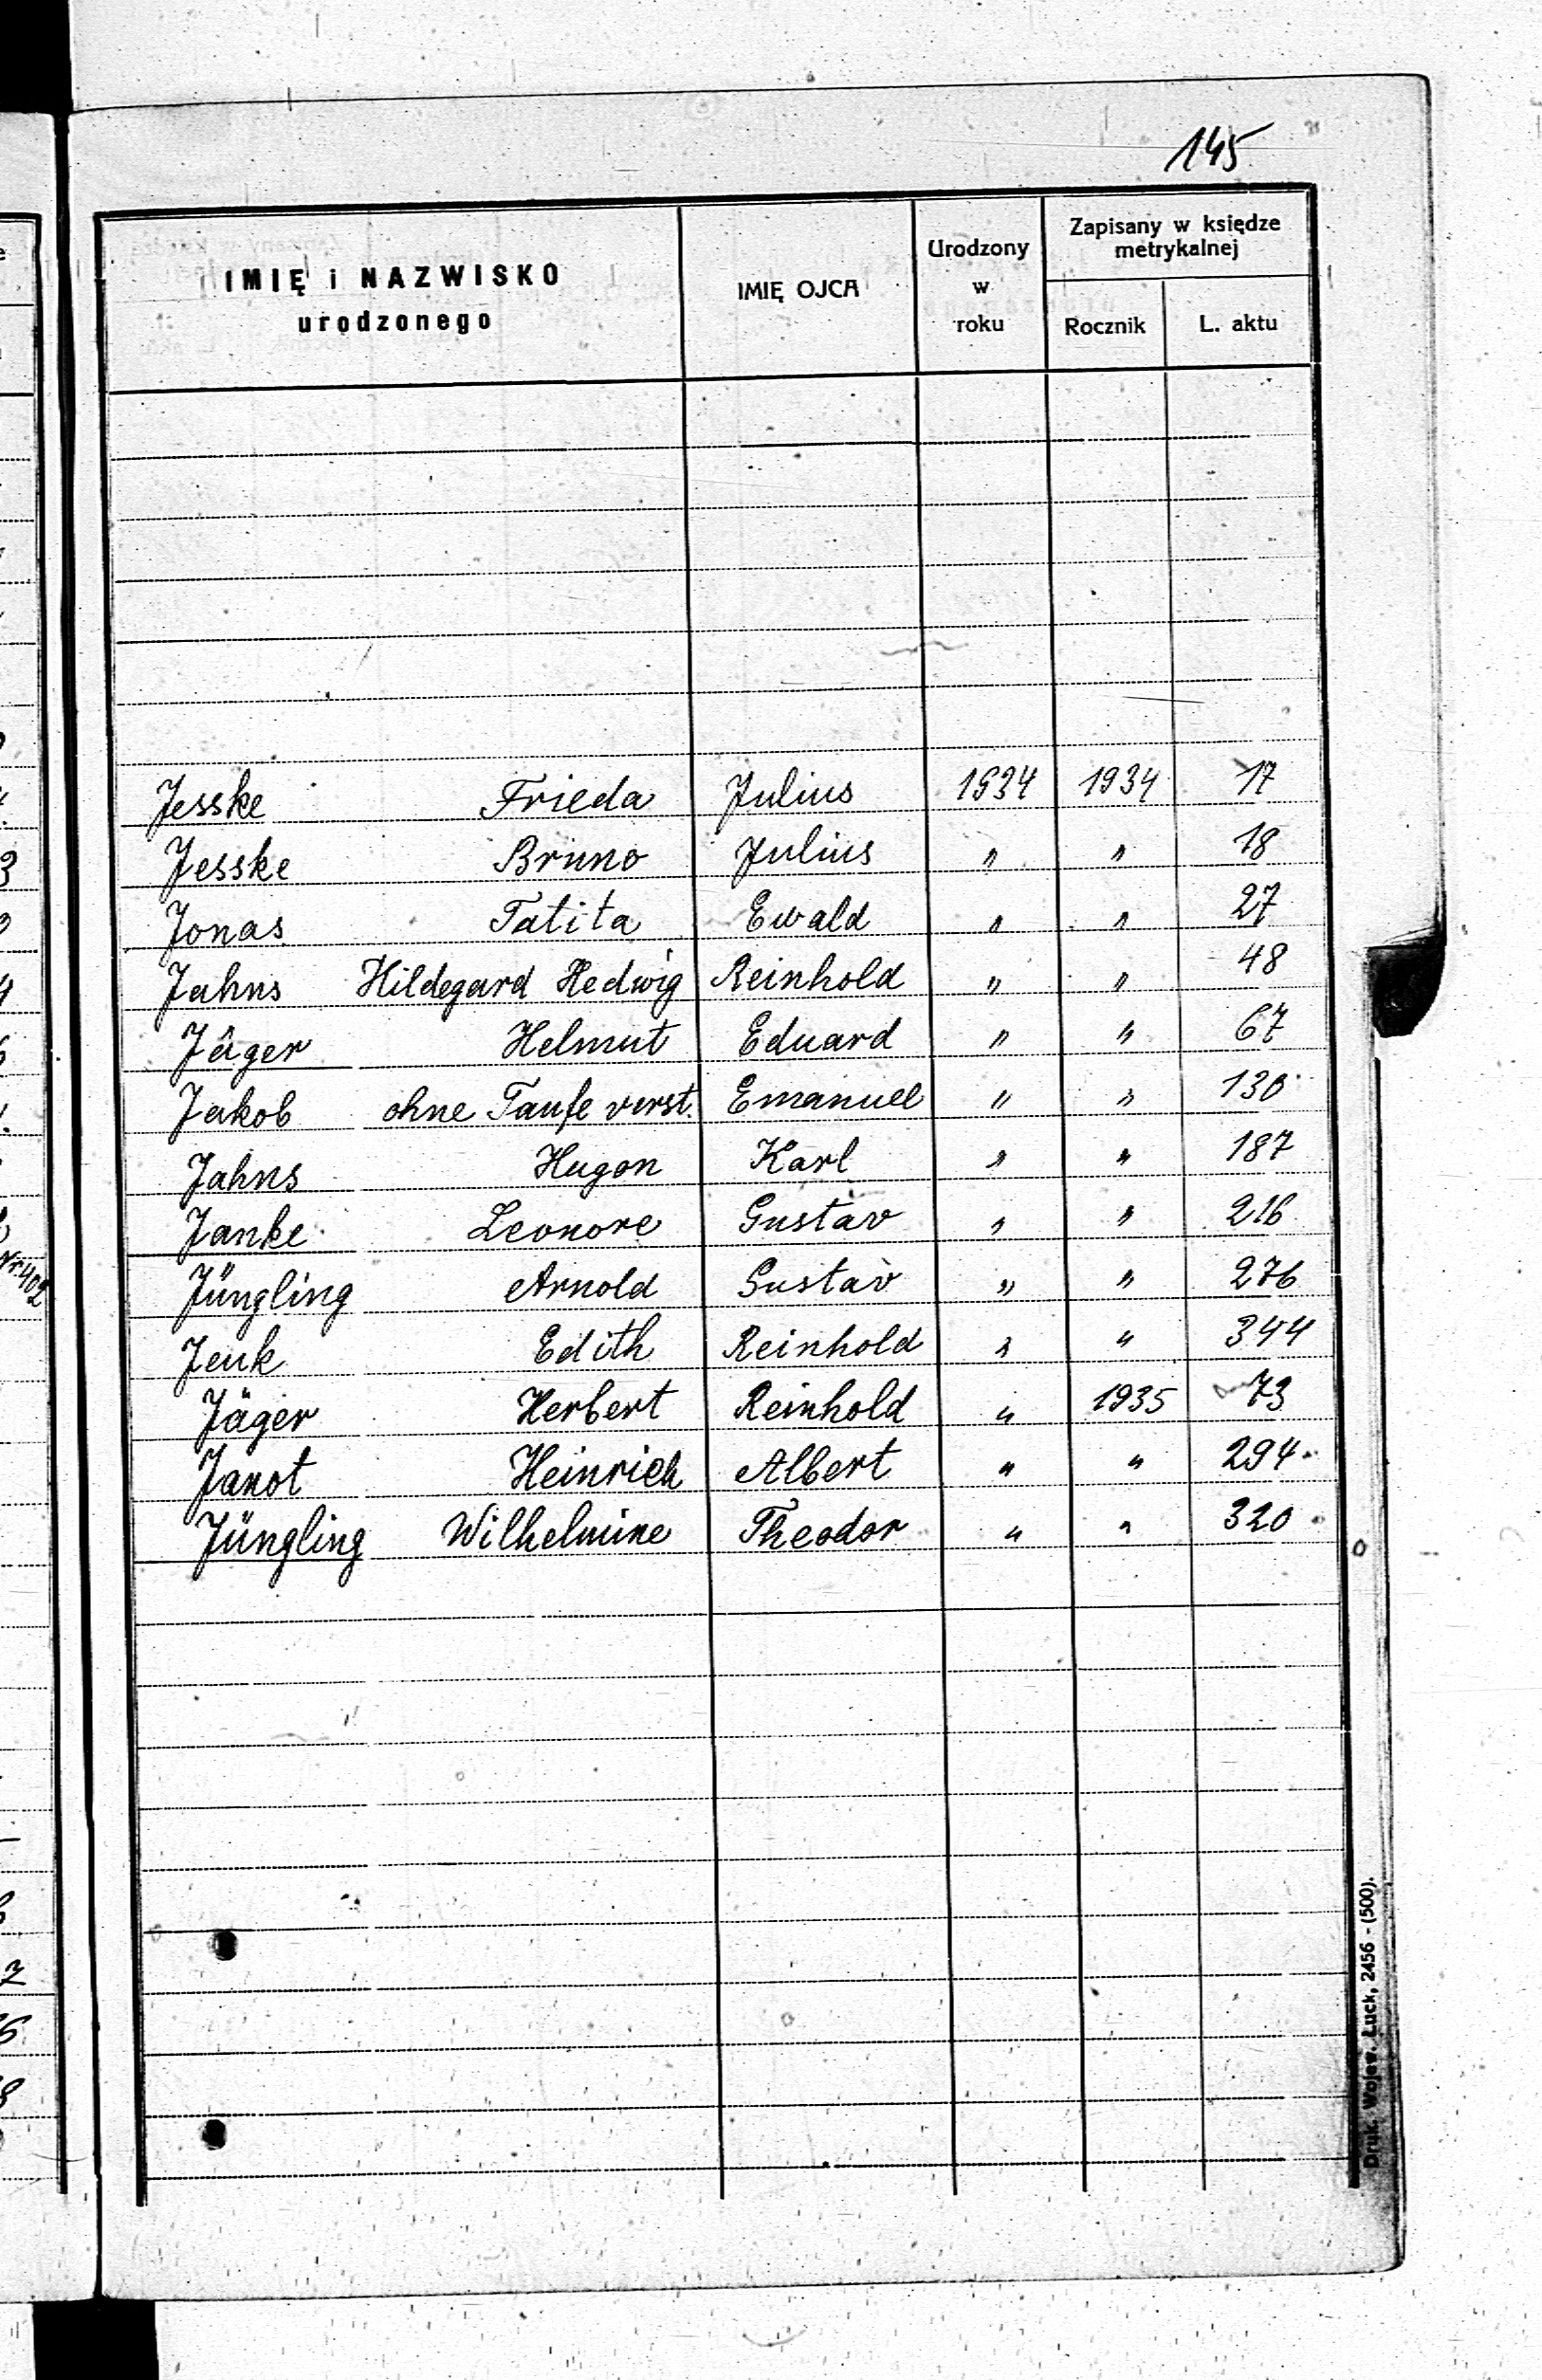 145
IMIĘ i NAZWISKO
urodzonego
IMIĘ OJCA
Urodzony
w
roku
Zapisany w księdze
metrykalnej
Rocznik
L. aktu
Jesske Frieda Julius 1934 1934 17
Jesske Bruno Julius " " 18
Jonas Tatita Ewald " " 27
Jahns Hildegard Hedwig Reinhold " " 48
Jäger Helmut Eduard " " 67
Jakob ohne Taufe verst. Emanuel " " 130
Jahns Hugon Karl " " 187
Janke Leonore Gustav " " 216
Jüngling Arnold Gustav " " 276
Jenk Edith Reinhold " " 344
Jäger Herbert Reinhold " 1935 73
Janot Heinrich Albert " " 294
Jüngling Wilhelmine Theodor " " 320
Druk. Wojew. Łuck, 2456 - (500).
Nr. 402